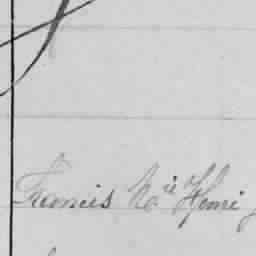 Francis M.ie Henri